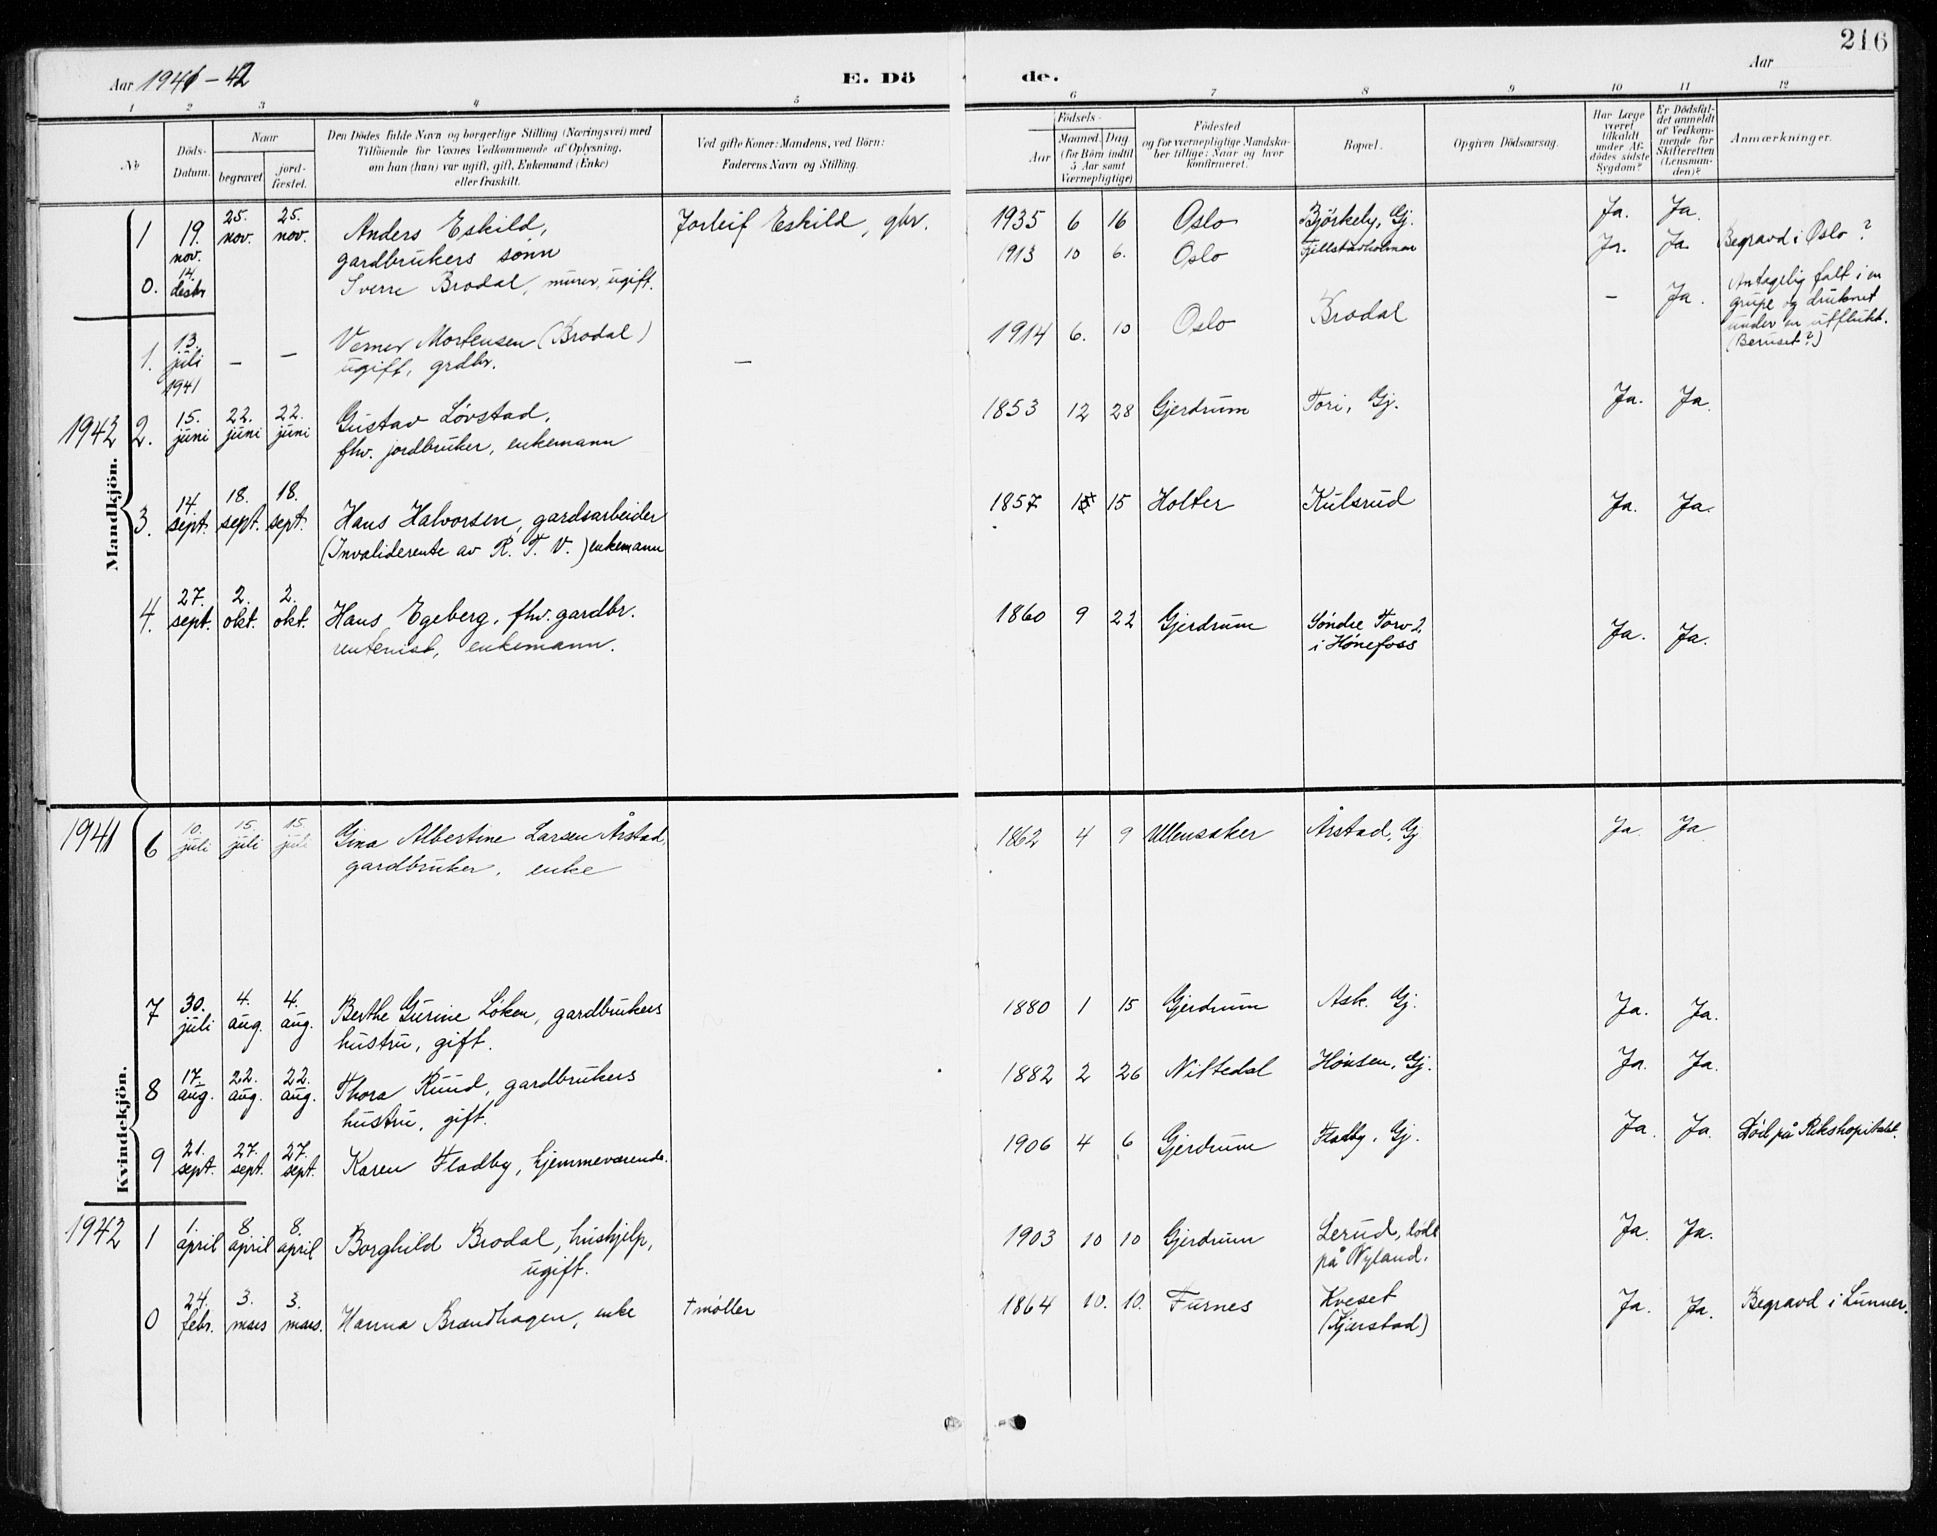 216
Aar 1941 - 42
E. Dö de.
Aar
1 2 3 4 5 6 7 8 9 10 11 12
No
Döds-
Datum.
Naar
begravet
jord-
fæstet.
Den Dödes fulde Navn og borgerlige Stilling (Næringsvei) med
Tilföiende for Voxnes Vedkommende af Oplysning,
om han (hun) var ugift, gift, Enkemand (Enke)
eller fraskilt.
Ved gifte Koner: Mandens, ved Börn:
Faderens Navn og Stilling.
Födsels-
Aar
Maaned. Dag
(for Börn indtil
5 Aar samt
Værnepligtige)
Födested
og for værnepligtige Mandska-
ber tillige: Naar og hvor
konfirmeret.
Bopæl.
Opgiven Dödsaarsag.
Har Læge
været
tilkaldt
under Af-
dödes sidste
Sygdom?
Er Dödsfal-
det anmeldt
af Vedkom-
mende for
Skifteretten
(Lensman-
den)?
Anmærkninger.
Mandkjön.
1 19. nov. 25. nov. 25. nov. Anders Eskild, Torleif Eskild, gbr. 1935 6 16 Oslo Björkeby, Gj. Ja. Ja.
gardbrukers sønn
0. 14. desbr Sverre Brodal, murer, ugift. 1913 10 6. Oslo Fjellstadholmen Ja. Ja. Begravd i Oslo?
1. 13. juli 1941 – – Verner Mortensen (Brodal) – 1914 6. 10 Oslo Brodal – Ja. Antagelig falt i en
ugift, grdbr. grupe og druknet
under en utflukt.
(Beruset?)
1942 2. 15. juni 22. juni 22. juni Gustav Lövstad, 1853 12 28 Gjerdrum Tori, Gj. Ja. Ja.
fhv. jordbruker, enkemann
3. 14. sept. 18. sept. 18. sept. Hans Halvorsen, gardsarbeider 1857 15 Holter Kulsrud Ja. Ja.
(Invaliderente av R. T. V.) enkemann
4. 27. sept. 2. okt. 2. okt. Hans Egeberg, fhv. gardbr. 1860 9 22 Gjerdrum Söndre Torv 2
rentenist, enkemann. i Hønefoss Ja. Ja.
Kvindekjön.
1941 6 10. juli 15. juli 15. juli Gina Albertine Larsen Årstad, 1862 4 9 Ullensaker Årstad, Gj Ja. Ja
gardbruker, enke
7 30. juli 4. aug. 4. aug. Berthe Gurine Löken, gardbrukers 1880 1 15 Gjerdrum Ask. Gj. Ja. Ja.
hustru, gift.
8 17. aug. 22. aug. 22. aug. Thora Ruud, gardbrukers 1882 2 26 Nittedal Hönsen, Gj. Ja. Ja.
hustru, gift.
9 21. sept. 27. sept. 27. sept. Karen Fladby, hjemmeværende. 1906 4 6 Gjerdrum Fladby, Gj. Ja. Ja. Död på Rikshopitalet.
1942 1 1. april 8. april 8. april Borghild Brodal, hushjelp, 1903 10 10 Gjerdrum Lerud, död Ja. Ja.
ugift. på Nyland.
0 24. febr. 3. mars 3. mars. Hanna Brændhagen, enke † møller 1864 10. 10. Furnes Kveset Ja. Ja. Begravd i Lunner.
(Kjærstad)